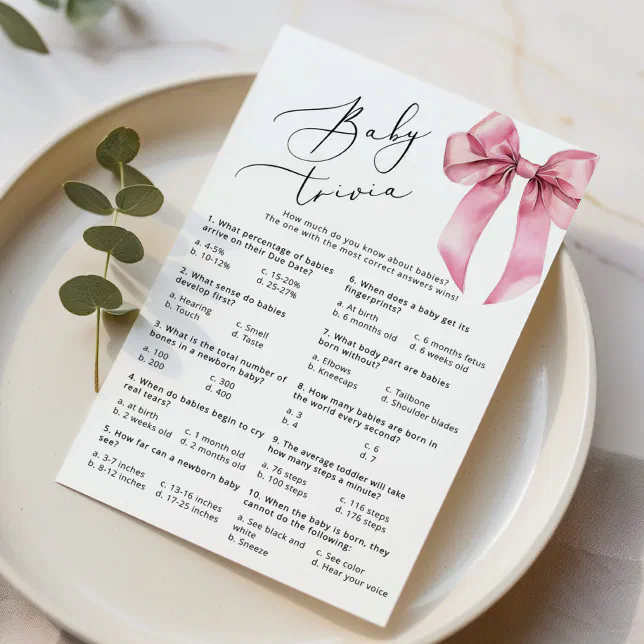 Baby
trivia
How much do you know about babies?
The one with the most correct answers wins!
1. What percentage of babies
arrive on their Due Date?
a. 4-5%
b. 10-12%
c. 15-20%
d. 25-27%
2. What sense do babies
develop first?
a. Hearing
b. Touch
c. Smell
d. Taste
3. What is the total number of
bones in a newborn baby?
a. 100
b. 200
c. 300
d. 400
4. When do babies begin to cry
real tears?
a. at birth
b. 2 weeks old
c. 1 month old
d. 2 months old
5. How far can a newborn baby
see?
a. 3-7 inches
b. 8-12 inches
c. 13-16 inches
d. 17-25 inches
6. When does a baby get its
fingerprints?
a. At birth
b. 6 months old
c. 6 months fetus
d. 6 weeks old
7. What body part are babies
born without?
a. Elbows
b. Kneecaps
c. Tailbone
d. Shoulder blades
8. How many babies are born in
the world every second?
a. 3
b. 4
c. 6
d. 7
9. The average toddler will take
how many steps a minute?
a. 76 steps
b. 100 steps
c. 116 steps
d. 176 steps
10. When the baby is born, they
cannot do the following:
a. See black and
white
b. Sneeze
c. See color
d. Hear your voice